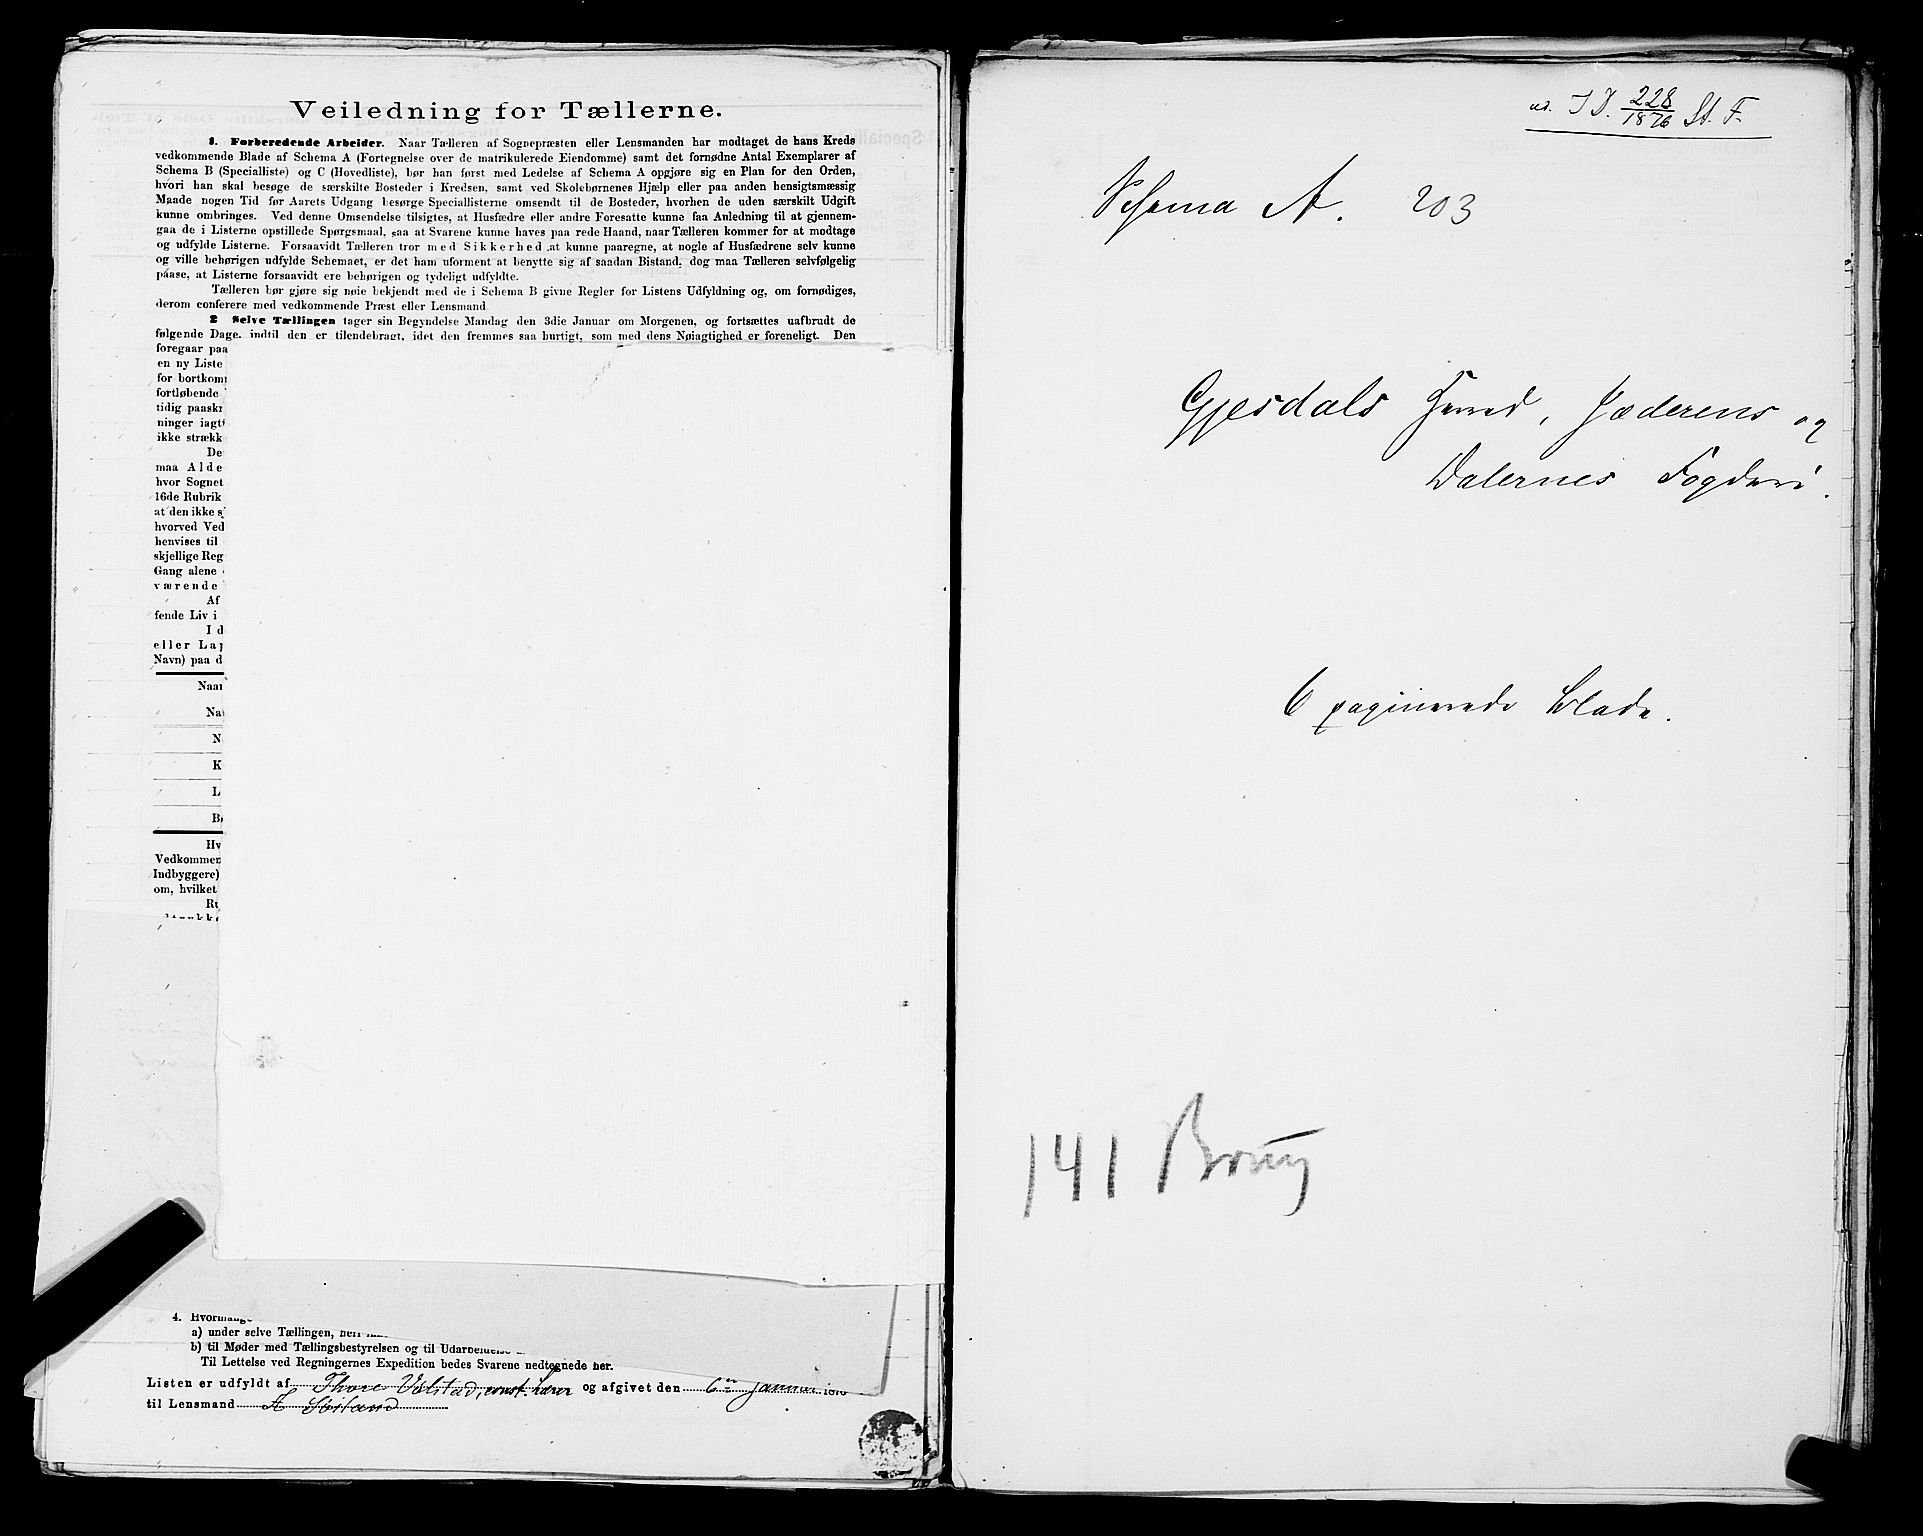 Veiledning for Tællerne.
1. Forberedende Arbeider. Naar Tælleren af Sognepræsten eller Lensmanden har modtaget de hans Kreds
vedkommende Blade af Schema A (Fortegnelse over de matrikulerede Eiendomme) samt det fornødne Antal Exemplarer af
Schema B (Specialliste) og C (Hovedliste), bør han først med Ledelse af Schema A opgjøre sig en Plan for den Orden,
hvori han skal besøge de særskilte Bosteder i Kredsen, samt ved Skolebørnenes Hjælp eller paa anden hensigtsmæssig
Maade nogen Tid før Aarets Udgang besørge Speciallisterne omsendt til de Bosteder, hvorhen de uden særskilt Udgift
kunne ombringes. Ved denne Omsendelse tilsigtes, at Husfædre eller andre Foresatte kunne faa Anledning til at gjennem-
gaa de i Listerne opstillede Spørgsmaal, saa at Svarene kunne haves paa rede Haand, naar Tælleren kommer for at modtage
og udfylde Listerne. Forsaavidt Tælleren tror med Sikkerhed at kunne paaregne, at nogle af Husfædrene selv kunne
og ville behørigen udfylde Schemaet, er det ham uforment at benytte sig af saadan Bistand, dog maa Tælleren selvfølgelig
paase, at Listerne forsaavidt ere behørigen og tydeligt udfyldte.
Tælleren bør gjøre sig nøie bekjendt med de i Schema B givne Regler for Listens Udfyldning og, om fornødiges,
derom conferere med vedkommende Præst eller Lensmand
2 Selve Tællingen tager sin Begyndelse Mandag den 3die Januar om Morgenen, og fortsættes uafbrudt de
følgende Dage, indtil den er tilendebragt, idet den fremmes saa hurtigt, som med dens Nøiagtighed er foreneligt. Den
foregaar paa
en ny Liste
for bortkom
fortløbende
tidig paaskr
ninger iagtt
ikke strækk
De
maa Alde
hvor Sognet
16de Rubrik
at den ikke s
hvorved Ved
henvises til
skjellige Reg
Gang alene
værende
Af
fende Liv i
I d
eller Lap
Navn) paa d
Naar
Na
N
K
L
B
Hv
Vedkommen
Indbyggere)
om, hvilket
Ru
4. Hvormange
a) under selve Tællingen,
b) til Møder med Tællingsbestyrelsen og til Udarbeidelse
Til Lettelse ved Regningernes Expedition bedes Svarene nedtegnede her.
Listen er udfyldt af Thore Ulstad, const. Lærer og afgivet den 6te Januar 1876
til Lensmand
J D. 228/1876 St. F.
Schema A. 203
Gjesdals Herred, Jæderens og
Dalernes Fogderi.
6 paginerede Blade.
141 Brug